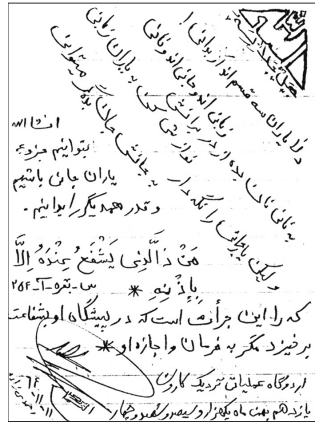 دلا یاران سه قسم اند ار بدانی
زبانی اند و نانی اند و جانی
به نانی نان بده از در برانش
نوازش کن به یاران زبانی
ولیکن یار جانی را نگه دار
به جانش جان بده گر میتوانی
انشاالله
بتوانیم جزوء
یاران جانی باشیم
و قدر همدیگر را بدانیم.
مَن ذَا الَّذِی یَشْفَعُ عِندَهُ اِلّا
بِاِذْنِهِ *
س - بقره - آ - ۲۵۴
که را این جرأت است که در پیشگاه او بشفاعت
برخیزد مگر به فرمان و اجازه او *
اردوگاه عملیاتی نزدیک کارون
یازدهم بهمن ماه یکهزار و سیصد و شصد و چهار